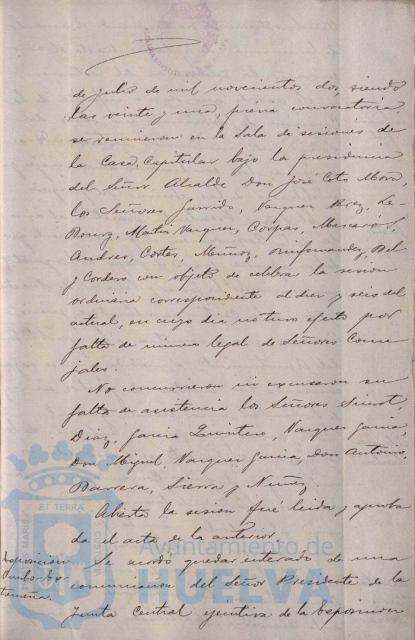 de julio de mil novecientos dos, siendo
las veinte y una, prévia convocatoria,
se reunieron en la Sala de sesiones de
la Casa Capitular bajo la presidencia
del Señor Alcalde Don José Coto Mora,
los Señores Garrido, Vazquez Perez, Le-
Bourg, Martin Vazquez, Corpas, Mascarós,
Andres, Cortes, Muñoz, Bel
y Cordero con objeto de celebrar la sesion
ordinaria correspondiente al diez y seis del
actual, en cuyo dia no tuvo efecto por
falta de número legal de Señores Conce
jales.
No concurrieron ni excusaron su
falta de asistencia los Señores Sinot,
Diaz, Garcia Quintero, Vazquez Garcia,
Don Miguel, Vazquez Garcia, Don Antonio,
Barrera, Sierra y Nuñez
Abierta la sesion fué leida y aproba
da el acta de la anterior.
Se acordó quedar enterado de una
comunicacion del Señor Presidente de la
Junta Central ejecutiva de la Esposicion
ET TERRA
Ayuntamiento de
HUELVA